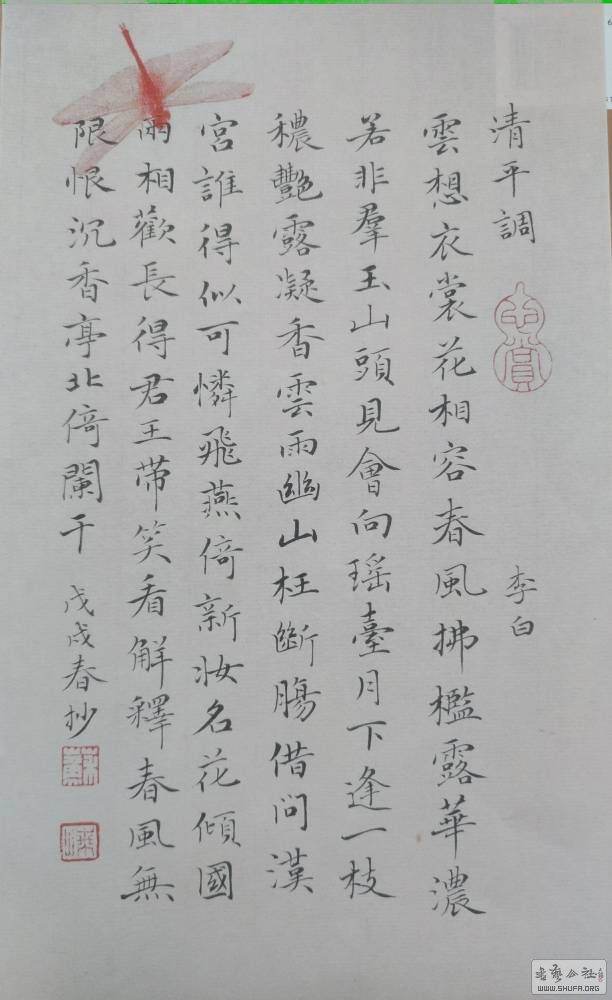 清平調 李白
雲想衣裳花相容春風拂檻露華濃
若非羣玉山頭見會向瑶臺月下逢一枝
穠豔露凝香雲雨幽山枉斷腸借問漢
宮誰得似可憐飛燕倚新妝名花傾國
兩相歡長得君王带笑看解釋春風無
限恨沉香亭北倚闌干 戊戌春抄
WWW.SHUFA.ORG